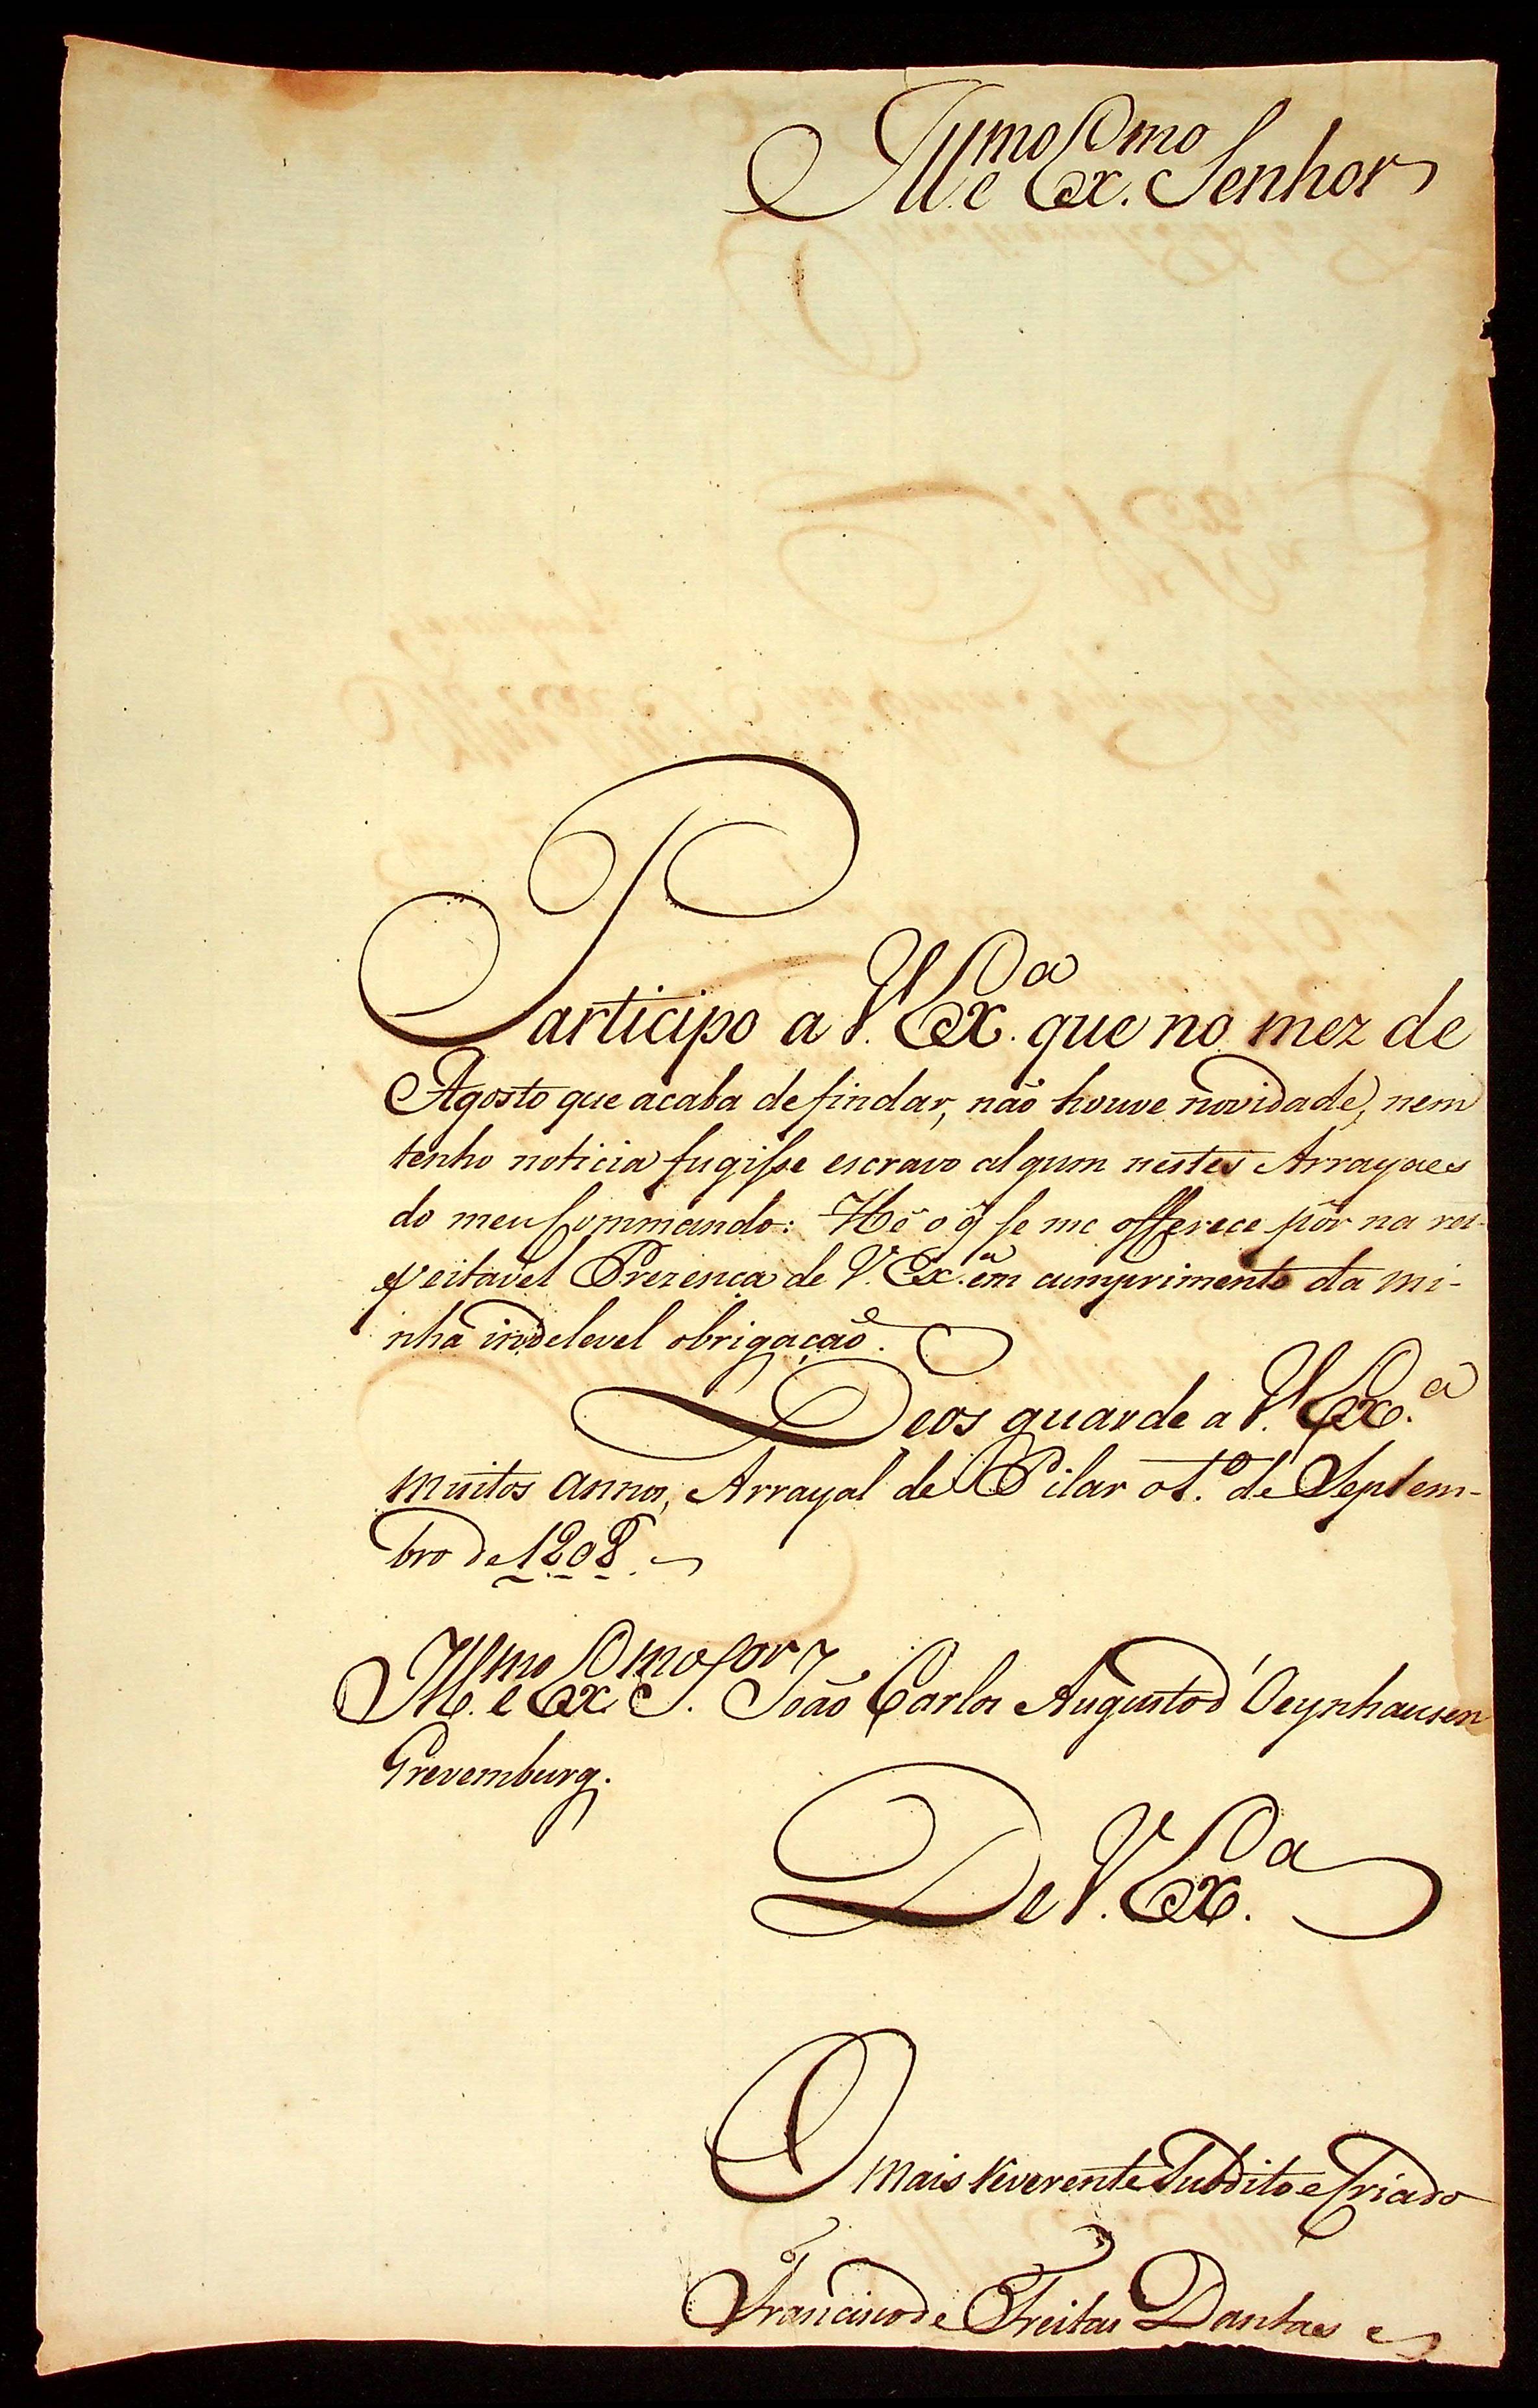 Ill.mo e Ex.mo Senhor
Participo a V. Ex.a que no mez de
Agosto que acaba de findar, não houve novidade, nem
tenho noticia fugisse escravo algum nestes Arrayaes
do meu Commando: Hé o q̃ se me offerece pôr na res-
peitavel Prezença de V. Ex.a em cumprimento da mi-
nha indelevel obrigação.
Deos guarde a V. Ex.a
muitos annos, Arrayal de Pilar o 1.o de Septem-
bro de 1808.
Ill.mo e Ex.mo S.or João Carlos Augusto d'Oeynhausen
Grevemburg.
De V. Ex.a
O mais reverente Subdito e Criado
Francisco de Freitas Dantaes